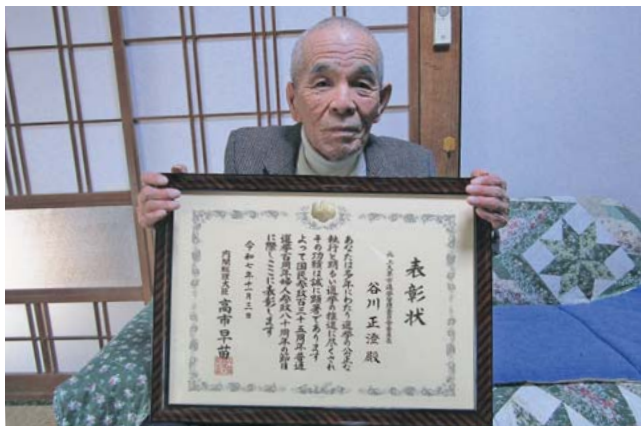 表彰状
谷川正澄殿
あなたは多年にわたり選挙の公正な
執行と明るい選挙の推進に尽くされ
その功績は誠に顕著であります
よって国民参政百三十五周年普通
選挙百周年婦人参政八十周年の節目
に際しここに表彰します
令和七年十一月三日
内閣総理大臣 高市早苗